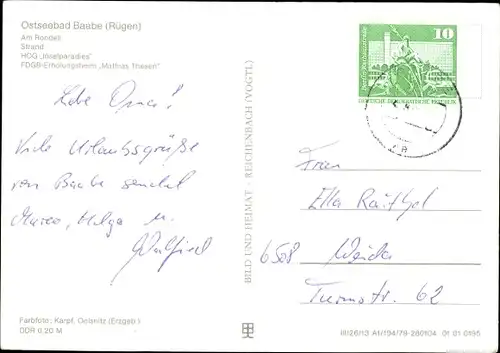 Ostseebad Baabe (Rügen)
Am Rondell
Strand
HOG „Inselparadies"
FDGB-Erholungsheim „Mathias Thesen"
Liebe Oma!
Viele Urlaubsgrüße
von Baabe sendet
Marco, Helga u.
Walfried
BILD UND HEIMAT · REICHENBACH (VOGTL)
10
DEUTSCHE DEMOKRATISCHE REPUBLIK
Frau
Ella Räithel
6508 Weida
Turmstr. 62
Farbfoto: Karpf, Oelsnitz (Erzgeb.)
DDR 0,20 M
III/26/13 A1/194/79-280104 01 01 0195